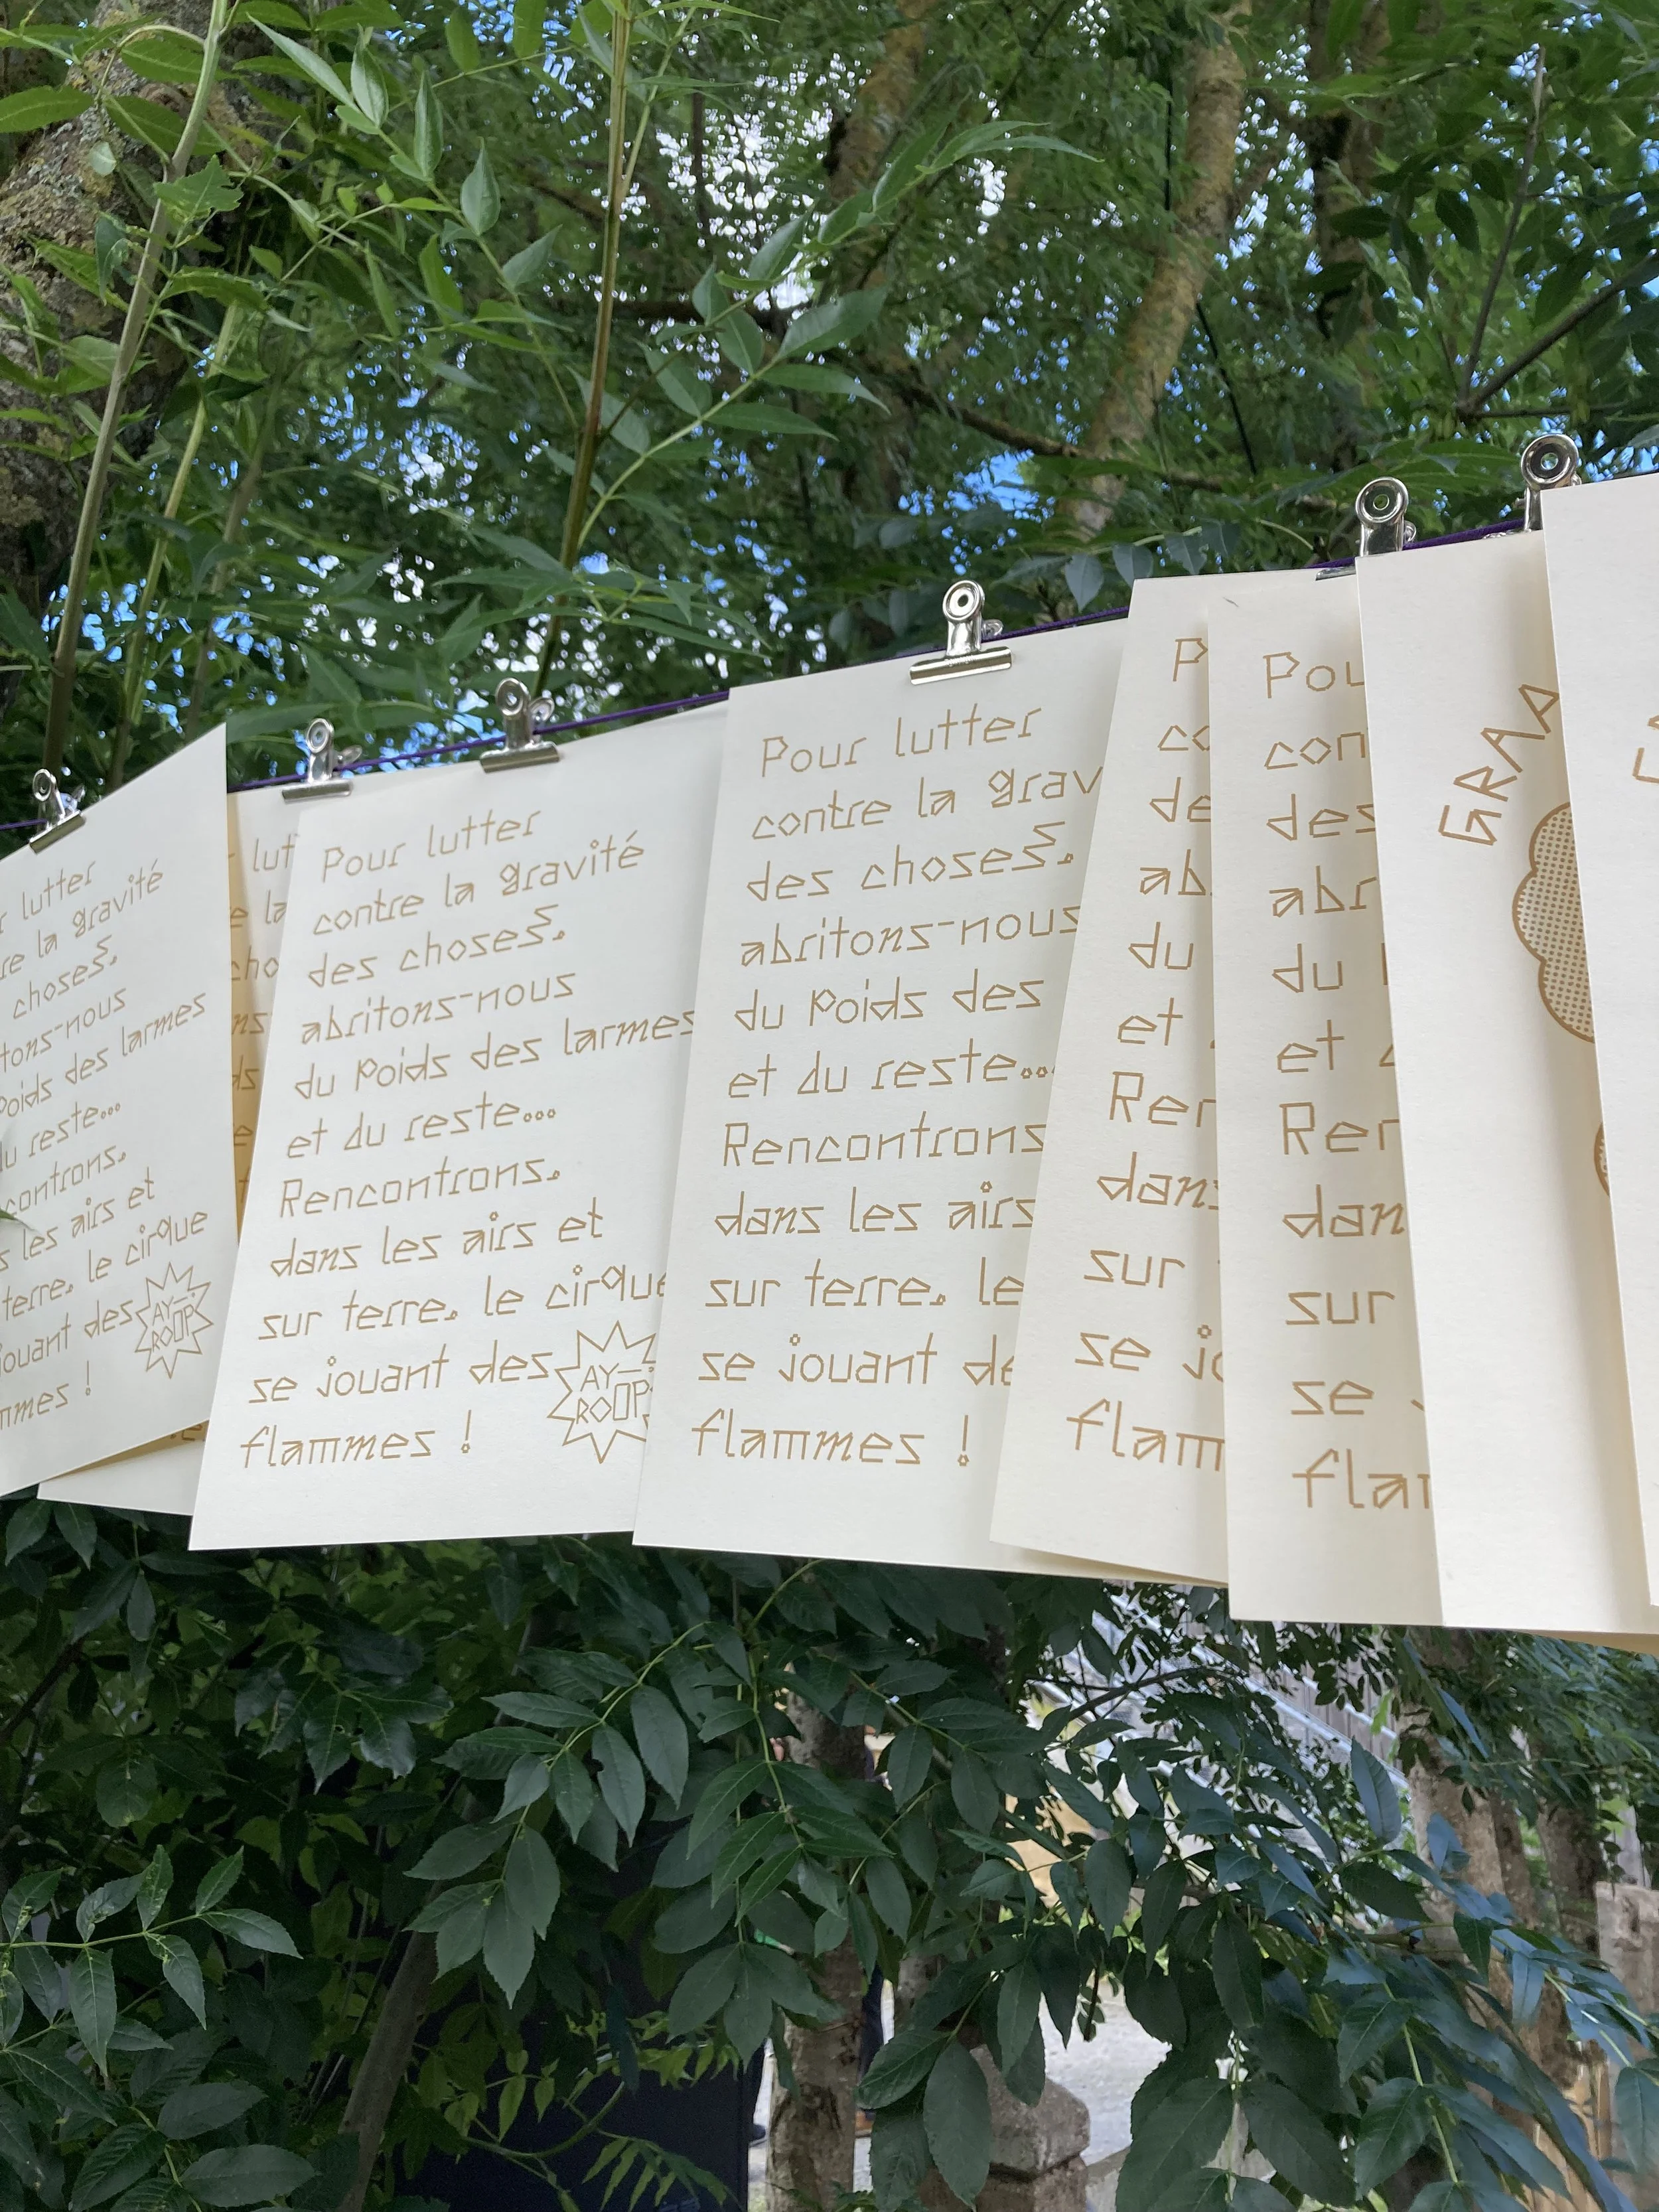 lutter
la gravité
choses,
nous
des larmes
reste...
les airs et
terre, le cirque
des
AY-
ROOP
!
Pour lutter
contre la gravité
des choses,
abritons-nous
du poids des larmes
et du reste...
Rencontrons,
dans les airs et
sur terre, le cirque
se jouant des
flammes !
AY-
ROOP
Pour lutter
contre la grav
des choses,
abritons-nous
du poids des
et du reste...
Rencontrons
dans les airs
sur terre, le
se jouant de
flammes !
P
co
de
ab
du
et
Ren
dans
sur
se jo
flam
Pou
con
des
abr
du
et
Ren
dan
sur
se
flam
GRAA